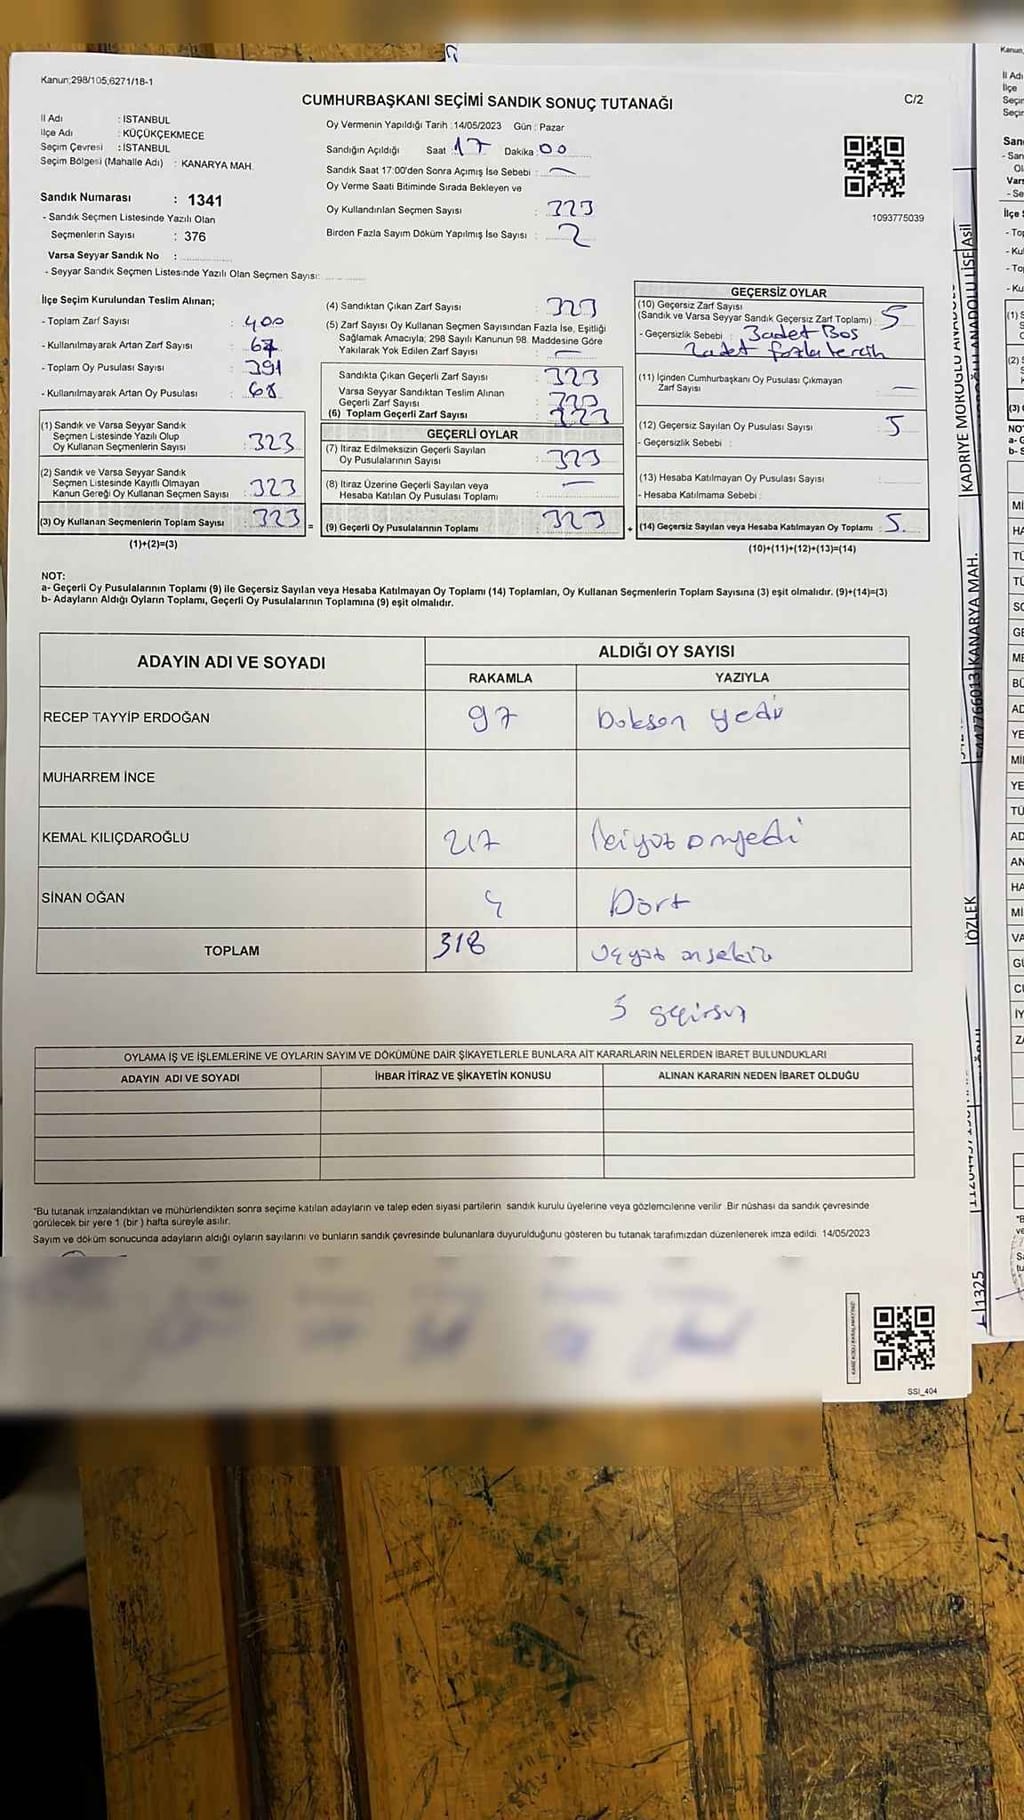 Kanun;298/105,6271/18-1
CUMHURBAŞKANI SEÇİMİ SANDIK SONUÇ TUTANAĞI
C/2
İl Adı : İSTANBUL
İlçe Adı : KÜÇÜKÇEKMECE
Seçim Çevresi : İSTANBUL
Seçim Bölgesi (Mahalle Adı) : KANARYA MAH.
Sandık Numarası : 1341
- Sandık Seçmen Listesinde Yazılı Olan
Seçmenlerin Sayısı : 376
Varsa Seyyar Sandık No :
- Seyyar Sandık Seçmen Listesinde Yazılı Olan Seçmen Sayısı:
Oy Vermenin Yapıldığı Tarih :14/05/2023 Gün : Pazar
Sandığın Açıldığı Saat 17 Dakika 00
Sandık Saat 17:00'den Sonra Açımış İse Sebebi :
Oy Verme Saati Bitiminde Sırada Bekleyen ve
Oy Kullandırılan Seçmen Sayısı : 323
Birden Fazla Sayım Döküm Yapılmış İse Sayısı : 2
1093775039
İlçe Seçim Kurulundan Teslim Alınan;
- Toplam Zarf Sayısı : 400
- Kullanılmayarak Artan Zarf Sayısı : 67
- Toplam Oy Pusulası Sayısı : 391
- Kullanılmayarak Artan Oy Pusulası : 68
(1) Sandık ve Varsa Seyyar Sandık
Seçmen Listesinde Yazılı Olup
Oy Kullanan Seçmenlerin Sayısı : 323
(2) Sandık ve Varsa Seyyar Sandık
Seçmen Listesinde Kayıtlı Olmayan
Kanun Gereği Oy Kullanan Seçmen Sayısı : 323
(3) Oy Kullanan Seçmenlerin Toplam Sayısı : 323 =
(1)+(2)=(3)
(4) Sandıktan Çıkan Zarf Sayısı : 323
(5) Zarf Sayısı Oy Kullanan Seçmen Sayısından Fazla İse, Eşitliği
Sağlamak Amacıyla; 298 Sayılı Kanunun 98. Maddesine Göre
Yakılarak Yok Edilen Zarf Sayısı :
Sandıkta Çıkan Geçerli Zarf Sayısı : 323
Varsa Seyyar Sandıktan Teslim Alınan
Geçerli Zarf Sayısı : 323
(6) Toplam Geçerli Zarf Sayısı : 323
GEÇERLİ OYLAR
(7) İtiraz Edilmeksizin Geçerli Sayılan
Oy Pusulalarının Sayısı : 323
(8) İtiraz Üzerine Geçerli Sayılan veya
Hesaba Katılan Oy Pusulası Toplamı :
(9) Geçerli Oy Pusulalarının Toplamı : 323 +
GEÇERSİZ OYLAR
(10) Geçersiz Zarf Sayısı
(Sandık ve Varsa Seyyar Sandık Geçersiz Zarf Toplamı) : 5
- Geçersizlik Sebebi : 3adet Bos
2adet fazla tercih
(11) İçinden Cumhurbaşkanı Oy Pusulası Çıkmayan
Zarf Sayısı :
(12) Geçersiz Sayılan Oy Pusulası Sayısı : 5
- Geçersizlik Sebebi :
(13) Hesaba Katılmayan Oy Pusulası Sayısı :
- Hesaba Katılmama Sebebi :
(14) Geçersiz Sayılan veya Hesaba Katılmayan Oy Toplamı : 5.
(10)+(11)+(12)+(13)=(14)
NOT:
a- Geçerli Oy Pusulalarının Toplamı (9) ile Geçersiz Sayılan veya Hesaba Katılmayan Oy Toplamı (14) Toplamları, Oy Kullanan Seçmenlerin Toplam Sayısına (3) eşit olmalıdır. (9)+(14)=(3)
b- Adayların Aldığı Oyların Toplamı, Geçerli Oy Pusulalarının Toplamına (9) eşit olmalıdır.
ADAYIN ADI VE SOYADI
ALDIĞI OY SAYISI
RAKAMLA YAZIYLA
RECEP TAYYİP ERDOĞAN 97 Doksan yedi
MUHARREM İNCE
KEMAL KILIÇDAROĞLU 217 İkiyüz onyedi
SİNAN OĞAN 4 Dört
TOPLAM 318 üçyüz onsekiz
5 geçirsiz
OYLAMA İŞ VE İŞLEMLERİNE VE OYLARIN SAYIM VE DÖKÜMÜNE DAİR ŞİKAYETLERLE BUNLARA AİT KARARLARIN NELERDEN İBARET BULUNDUKLARI
ADAYIN ADI VE SOYADI İHBAR İTİRAZ VE ŞİKAYETİN KONUSU ALINAN KARARIN NEDEN İBARET OLDUĞU
*Bu tutanak imzalandıktan ve mühürlendikten sonra seçime katılan adayların ve talep eden siyasi partilerin sandık kurulu üyelerine veya gözlemcilerine verilir. Bir nüshası da sandık çevresinde
görülecek bir yere 1 (bir ) hafta süreyle asılır.
Sayım ve döküm sonucunda adayların aldığı oyların sayılarını ve bunların sandık çevresinde bulunanlara duyurulduğunu gösteren bu tutanak tarafımızdan düzenlenerek imza edildi. 14/05/2023
SSİ_404
KADRİYE MOROĞLU ANADOLU LİSE Asil
KANARYA MAH.
ÖZLEK
1325